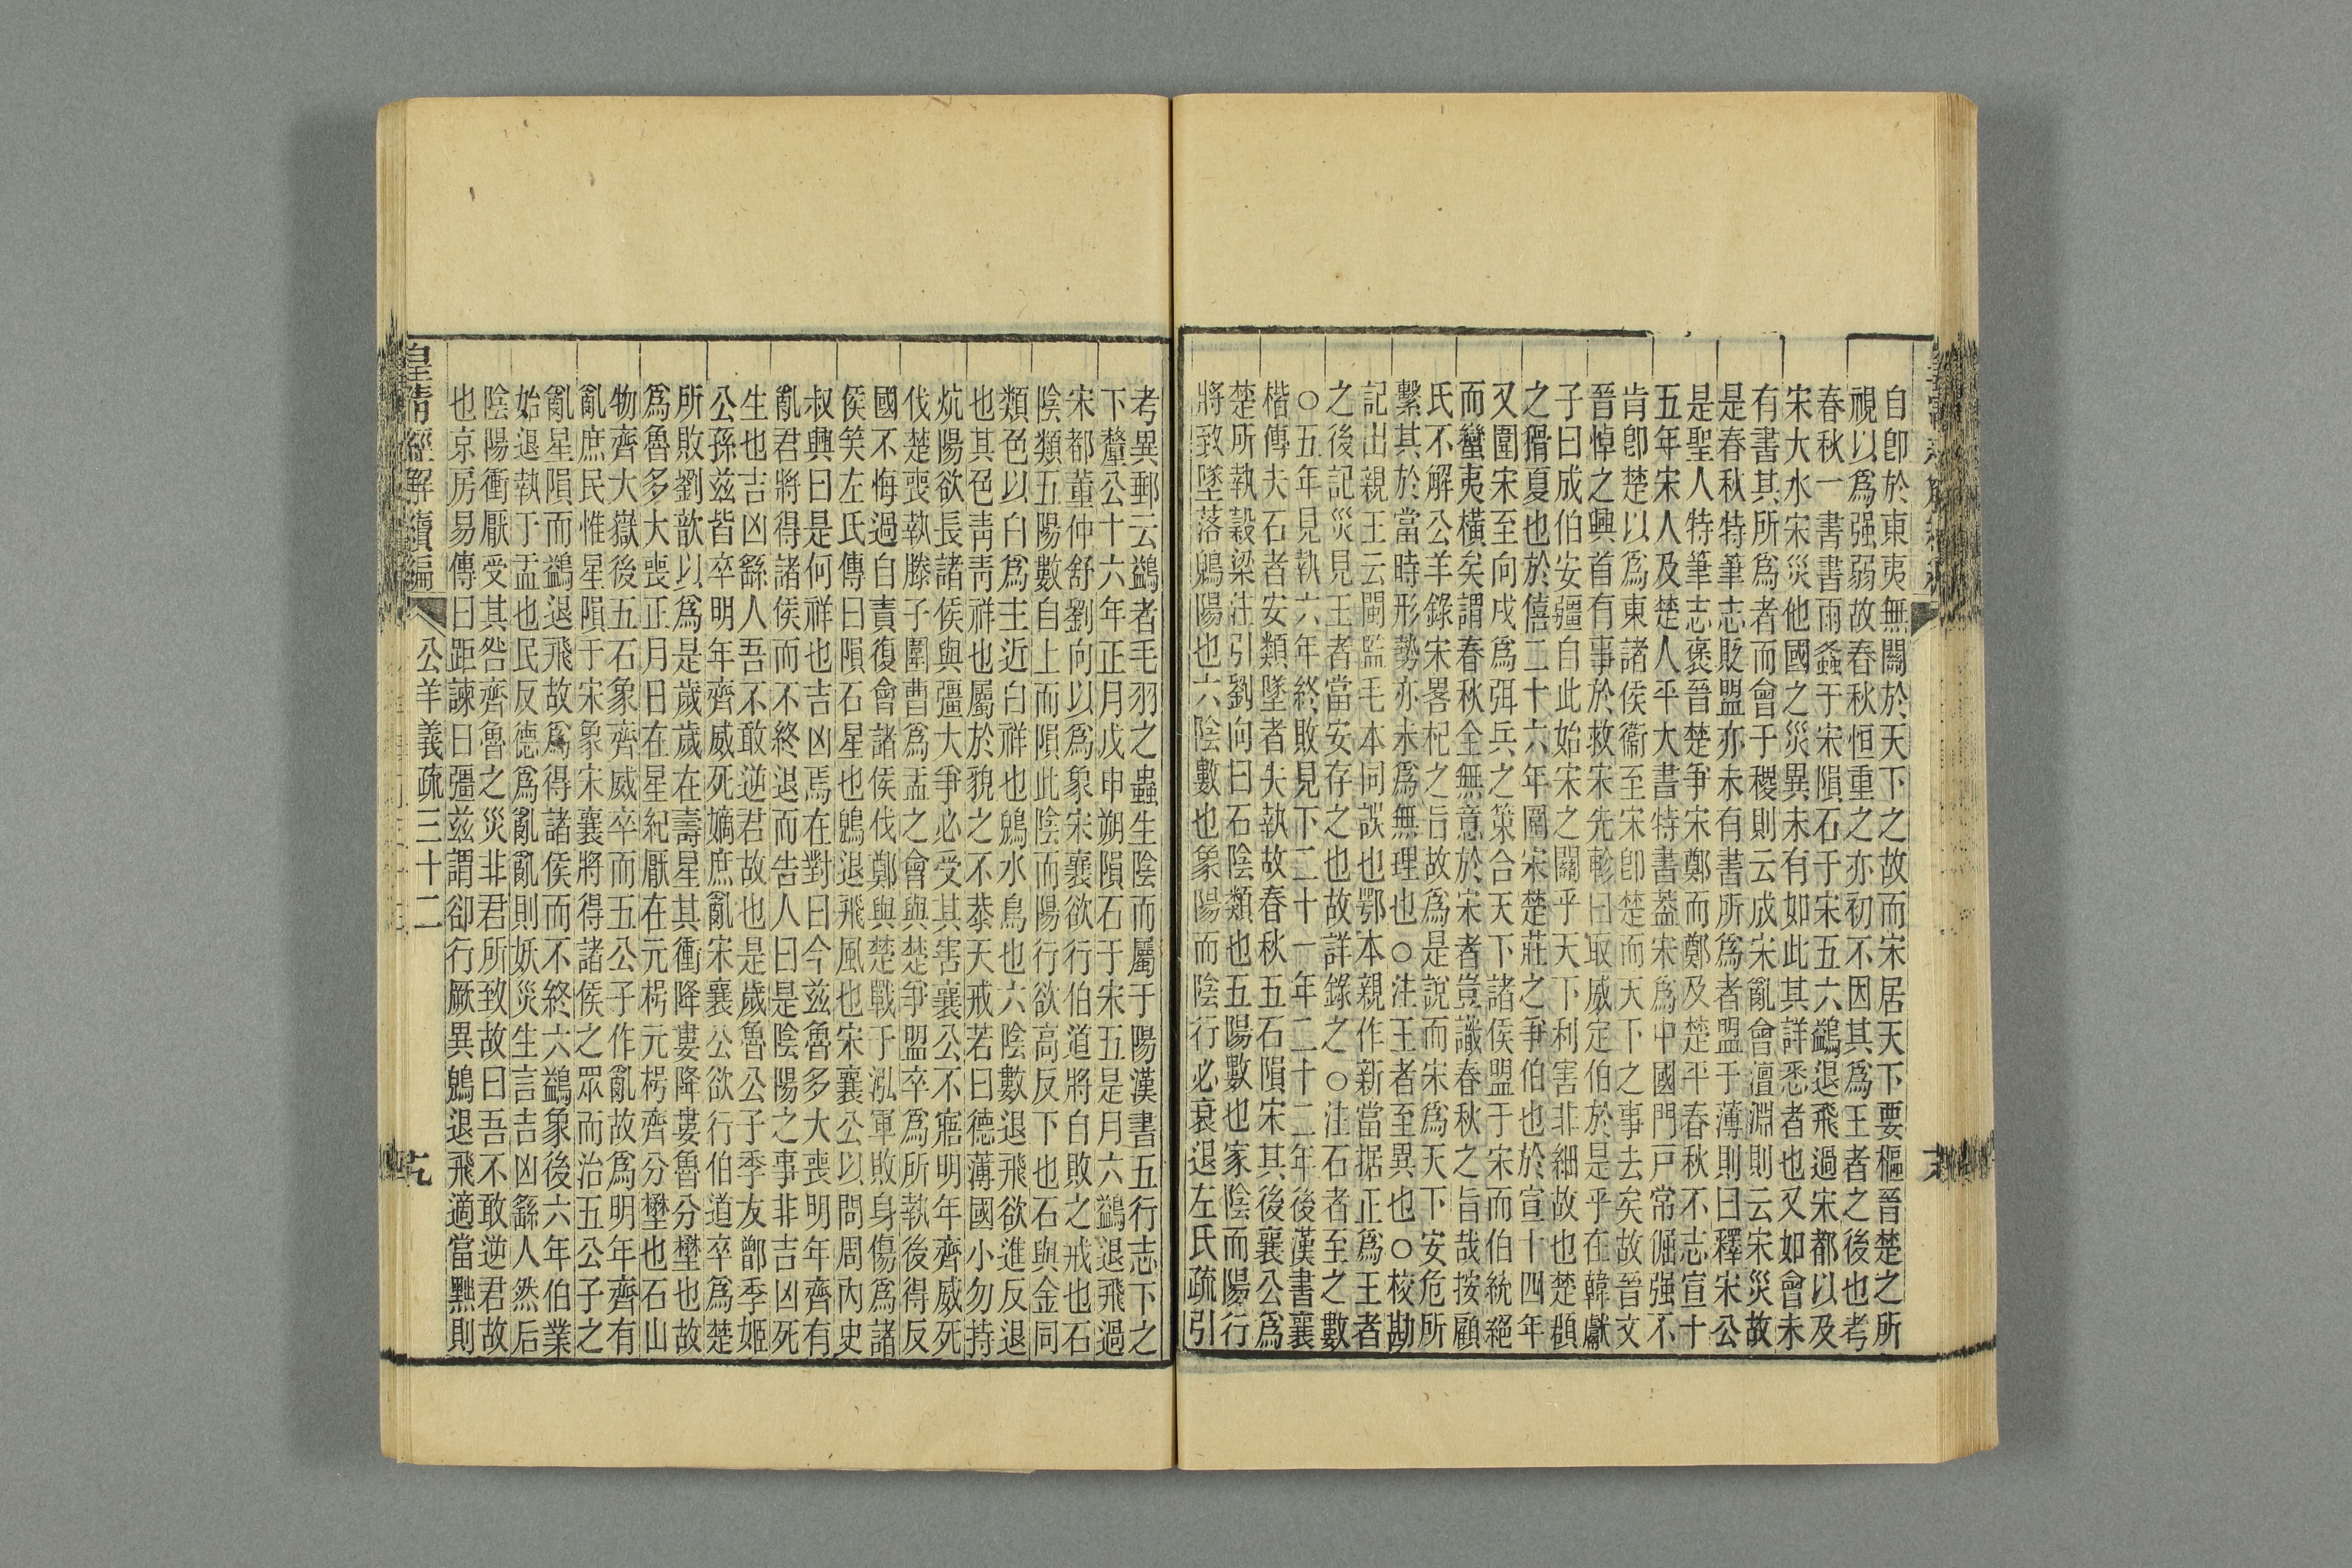 自卽於東夷無關於天下之故而宋居天下要樞晉楚之所
視以爲强弱故春秋恒重之亦初不因其爲王者之後也考
春秋一書書雨螽于宋隕石于宋五六鷁退飛過宋都以及
宋大水宋災他國之災異未有如此其詳悉者也又如會未
有書其所爲者而會于稷則云成宋亂會澶淵則云宋災故
是春秋特筆志貶盟亦未有書所爲者盟于薄則曰釋宋公
是聖人特筆志褒晉楚爭宋鄭而鄭及楚平春秋不志宣十
五年宋人及楚人平大書特書葢宋爲中國門戸常倔强不
肯卽楚以爲東諸侯衞至宋卽楚而天下之事去矣故晉文
晉悼之興首有事於救宋先軫曰取威定伯於是乎在韓獻
子曰成伯安疆自此始宋之關乎天下利害非細故也楚頵
之猾夏也於僖二十六年圍宋楚莊之爭伯也於宣十四年
又圍宋至向戌爲弭兵之策合天下諸侯盟于宋而伯統絕
而蠻夷橫矣謂春秋全無意於宋者豈識春秋之旨哉按顧
氏不解公羊錄宋畧杞之旨故爲是說而宋爲天下安危所
繫其於當時形勢亦未爲無理也○注王者至異也○校勘
記出親王云閩監毛本同誤也鄂本親作新當据正爲王者
之後記災見王者當安存之也故詳錄之○注石者至之數
○五年見執六年終敗見下二十一年二十二年後漢書襄
楷傳夫石者安類墜者失執故春秋五石隕宋其後襄公爲
楚所執穀梁注引劉向曰石陰類也五陽數也家陰而陽行
將致墜落鶂陽也六陰數也象陽而陰行必衰退左氏疏引
考異郵云鷁者毛羽之蟲生陰而屬于陽漢書五行志下之
下釐公十六年正月戊申朔隕石于宋五是月六鷁退飛過
宋都董仲舒劉向以爲象宋襄欲行伯道將自敗之戒也石
陰類五陽數自上而隕此陰而陽行欲高反下也石與金同
類色以白爲主近白祥也鶂水鳥也六陰數退飛欲進反退
也其色靑靑祥也屬於貌之不恭天戒若曰德薄國小勿持
炕陽欲長諸侯與彊大爭必受其害襄公不寤明年齊威死
伐楚喪執滕子圍曹爲盂之會與楚爭盟卒爲所執後得反
國不悔過自責復會諸侯伐鄭與楚戰于泓軍敗身傷爲諸
侯笑左氏傳曰隕石星也鶂退飛風也宋襄公以問周內史
叔興曰是何祥也吉凶焉在對曰今兹魯多大喪明年齊有
亂君將得諸侯而不終退而告人曰是陰陽之事非吉凶死
生也吉凶繇人吾不敢逆君故也是歲魯公子季友鄫季姬
公孫兹皆卒明年齊威死嫡庶亂宋襄公欲行伯道卒爲楚
所敗劉歆以爲是歲歲在壽星其衝降婁降婁魯分壄也故
爲魯多大喪正月日在星紀厭在元枵元枵齊分壄也石山
物齊大嶽後五石象齊威卒而五公子作亂故爲明年齊有
亂庶民惟星隕于宋象宋襄將得諸侯之眾而治五公子之
亂星隕而鷁退飛故爲得諸侯而不終六鷁象後六年伯業
始退執于盂也民反德爲亂亂則妖災生言吉凶繇人然后
陰陽衝厭受其咎齊魯之災非君所致故曰吾不敢逆君故
也京房易傳曰距諫曰彊兹謂卻行厥異鶂退飛適當黜則
皇淸經解續編
公羊義疏三十二